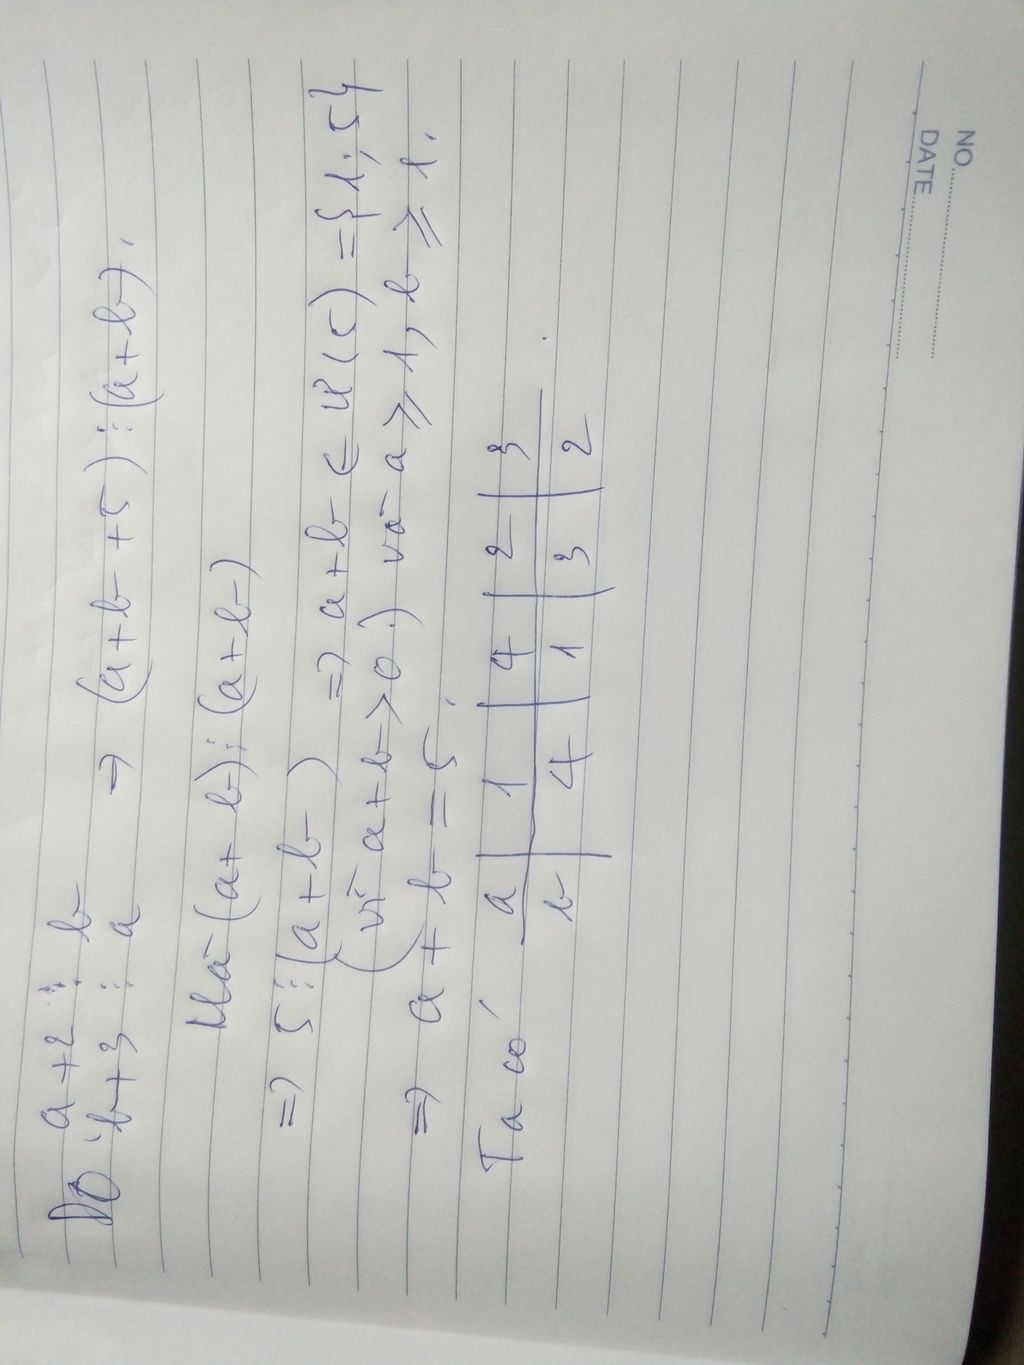 NO.
DATE
Do a+2 ⋮ b
b+3 ⋮ a ⇒ (a+b+5) ⋮ (a+b).
Mà (a+b) ⋮ (a+b)
⇒ 5 ⋮ (a+b) ⇒ a+b ∈ Ư(5) = {1; 5}
(vì a+b > 0) và a ⩾ 1, b ⩾ 1.
⇒ a + b = 5.
Ta có a | 1 | 4 | 2 | 3
b | 4 | 1 | 3 | 2